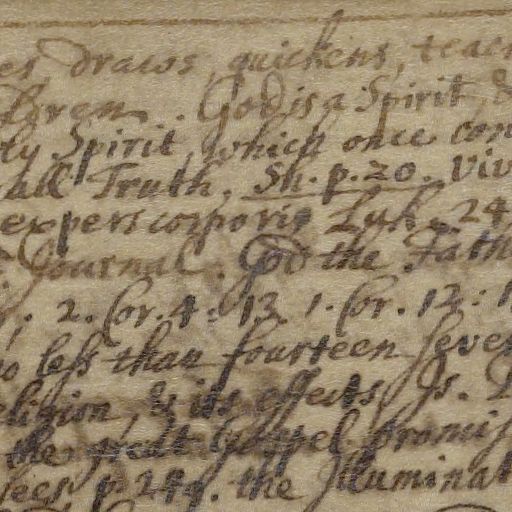 es, draws, quickens, teac
them. God is a Spirit, &
ly Spirit, which once con
all Truth, Sh. p. 20. viv
expers corporis Luk. 24
Journal. God the Fath
2. Cor. 4: 13. 1. Cor. 12: 1
o less than fourteen seve
eligion, & its effects, Is.
the great Gospel promis
sees p. 244. the Illuminat